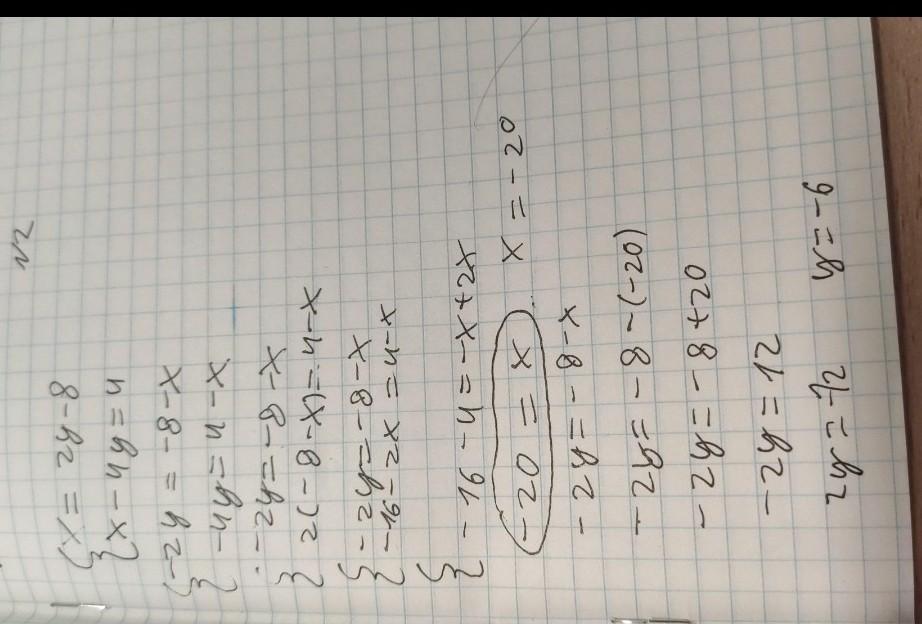 №2
{ x = 2y - 8
{ x - 4y = 4
{ -2y = -8 - x
{ -4y = 4 - x
{ -2y = -8 - x
{ 2(-8-x) = 4 - x
{ -2y = -8 - x
{ -16 - 2x = 4 - x
{ -16 - 4 = -x + 2x
-20 = x. x = -20
-2y = -8 - x
-2y = -8 - (-20)
-2y = -8 + 20
-2y = 12
2y = -12 y = -6